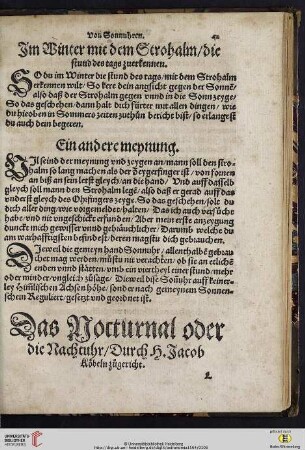 Von Sonnuhren.
Im Winter mit dem Strohalm/die
stund des tags zuerkennen.
SO du im Winter die stund des tags/mit dem Strohalm
erkennen wilt/So kere dein angsicht gegen der Sonnē/
also daß der Strohalm gegen vnnd in die Sonn zeyge/
So das geschehen/dann halt dich fürter mit allen dingen/wie
du hieoben in Sommers zeiten zuthůn bericht bist/so erlangest
du auch dein begeren.
Ein andere meynung.
VIl seind der meynung vnd zeygen an/mann soll den stro-
halm so lang machen als der Zeygerfinger ist/von fornen
an biß an sein letst gleych/an die hand/ Vnd auff dasselb
gleych soll mann den Strohalm legē/also daß er gerad auff das
vnderst gleych des Ohrfingers zeyge. So das geschehen/solt du
dich aller ding wie vorgemeldet/halten/ Das ich auch versůcht
habe/vnd nit vngeschickt erfunden/Aber mein erste anzeygung
duncket mich gewisser vnnd gebräuchlicher/Darumb welche du
am warhafftigsten befindest/deren magstu dich gebrauchen.
DIeweil die gemeyn hand Sonnuhr/allenthalbē gebrau-
chet mag werden/můstu nit verachten/ob sie an etlichē
enden vmb stätten/vmb ein viertheyl einer stund/mehr
oder minder/vngleich zůsage/ Dieweil dise Sonuhr auff keiner-
ley Himlischen Achsen höhe/sonder nach gemeynem Sonnen-
schein Reguliert/gesetzt vnd geordnet ist.
Das Nocturnal oder
die Nachtuhr/Durch H. Jacob
Köbeln zůgericht.
L
UNIVERSITÄTS-
BIBLIOTHEK
HEIDELBERG
© Universitätsbibliothek Heidelberg